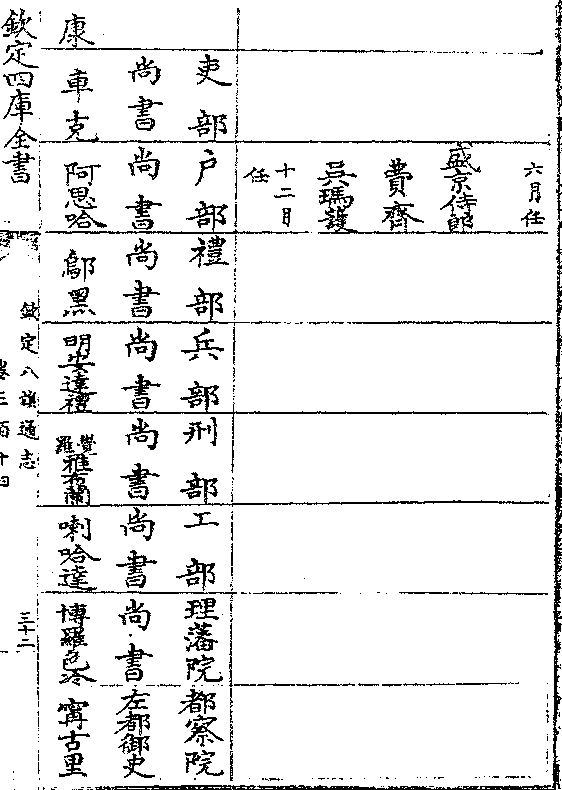 六月任
盛京侍郎
費齊
吳瑪護
十二月
任
吏部
尚書
車克
戶部
尚書
阿思哈
禮部
尚書
鄔黑
兵部
尚書
明安達禮
刑部
尚書
覺羅雅布蘭
工部
尚書
喇哈達
理藩院
尚書
博羅色冷
都察院
左都御史
甯古里
康
欽定四庫全書
欽定八旗通志
三十二